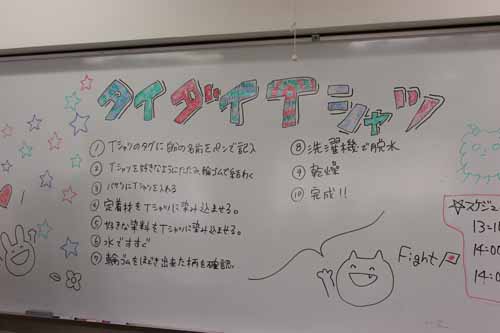 タイダイTシャツ
① Tシャツのタグに自分の名前をペンで記入
② Tシャツを好きなようにたたみ、輪ゴムで結わく
③ バケツにTシャツを入れる
④ 定着材をTシャツに染み込ませる。
⑤ 好きな染料をTシャツに染み込ませる。
⑥ 水ですすぐ
⑦ 輪ゴムをほどき出来た柄を確認。
⑧ 洗濯機で脱水
⑨ 乾燥
⑩ 完成!!
Fight
☆スケジュ
13:10
14:00
14:0